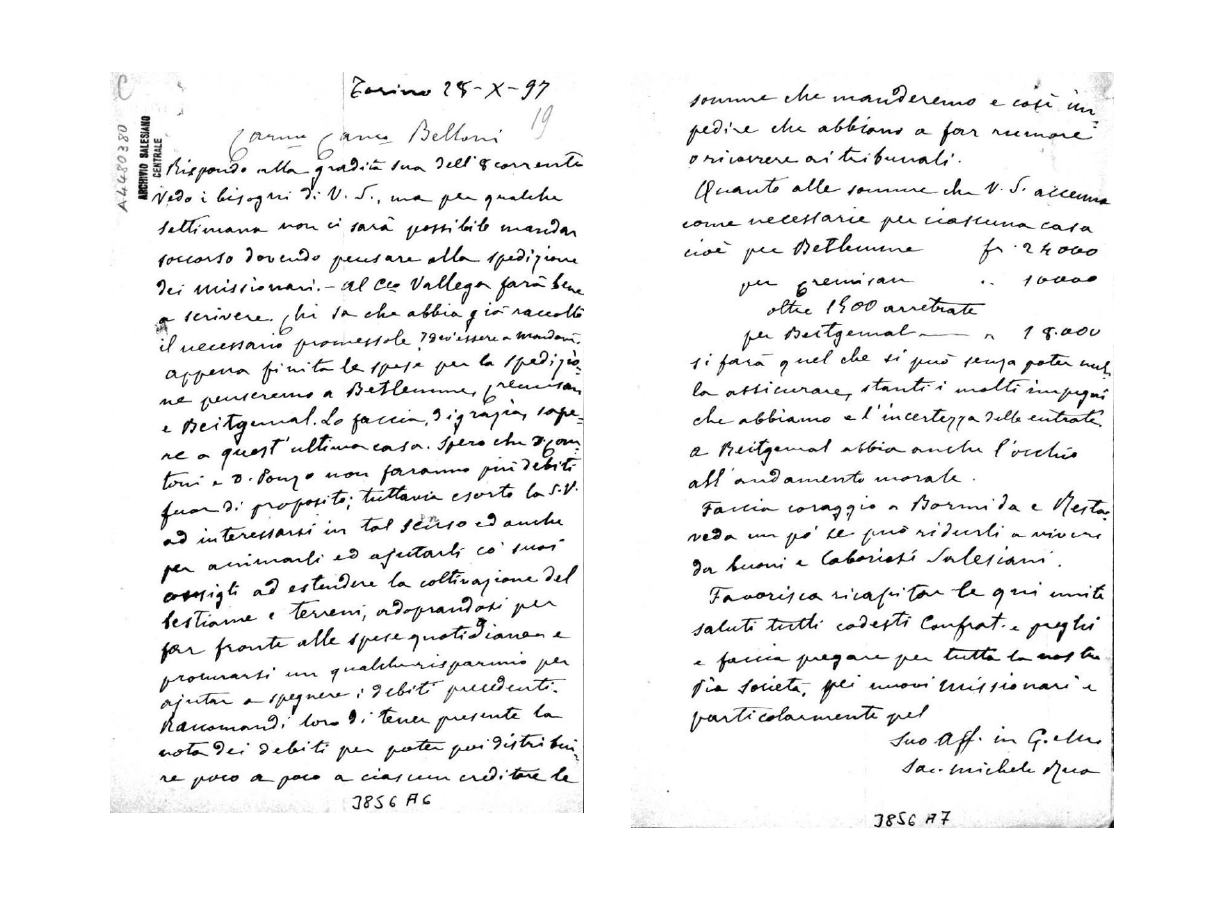 C
Torino 28-X-97
19
A4480380
ARCHIVIO SALESIANO
CENTRALE
Carmo Canco Belloni
Rispondo alla gradita sua dell'8 corrente
Vedo i bisogni di V. S., ma per qualche
settimana non ci sarà possibile mandar
soccorso dovendo pensare alla spedizione
dei missionari. - Al Cco Vallega farà bene
a scrivere. Chi sa che abbia già raccolto
il necessario promessole
Appena finite le spese per la spedizio=
ne penseremo a Betlemme, Cremisan
e Beitgemal. Lo faccia, di grazia, sape=
re a quest'ultima casa. Spero che D.
e D. Ponzo non faranno più debiti
fuor di proposito; tuttavia esorto la S.V.
ad interessarsi in tal senso ed anche
per animarli ed ajutarli co' suoi
consigli ad estendere la coltivazione del
bestiame e terreni, adoprandosi per
far fronte alle spese quotidiane e
procurarsi un qualche risparmio per
ajutar a spegnere i debiti precedenti.
Raccomandi loro di tener presente la
nota dei debiti per poter poi distribui=
re poco a poco a ciascun creditore le
3856 A6
somme che manderemo e così im=
pedire che abbiano a far rumore
o ricorrere ai tribunali.
Quanto alle somme che V. S. accenna
come necessarie per ciascuna casa
cioè per Betlemme fr. 24000
per Cremisan .. 10000
oltre 1500 arretrate
per Beitgemal — " 18.000
si farà quel che si può senza poter nul=
la assicurare, stanti i molti impegni
che abbiamo e l'incertezza delle entrate
A Beitgemal abbia anche l'occhio
all'andamento morale.
Faccia coraggio a Bormida e
veda un po' se può ridurli a vivere
da buoni e laboriosi Salesiani.
Favorisca ricapitar le qui unite
saluti tutti codesti Confrat. e preghi
e faccia pregare per tutta la nostra
Pia Società, pei nuovi missionari e
particolarmente pel
Suo Aff. in G. e M.
Sac. Michele Rua
3856 A7